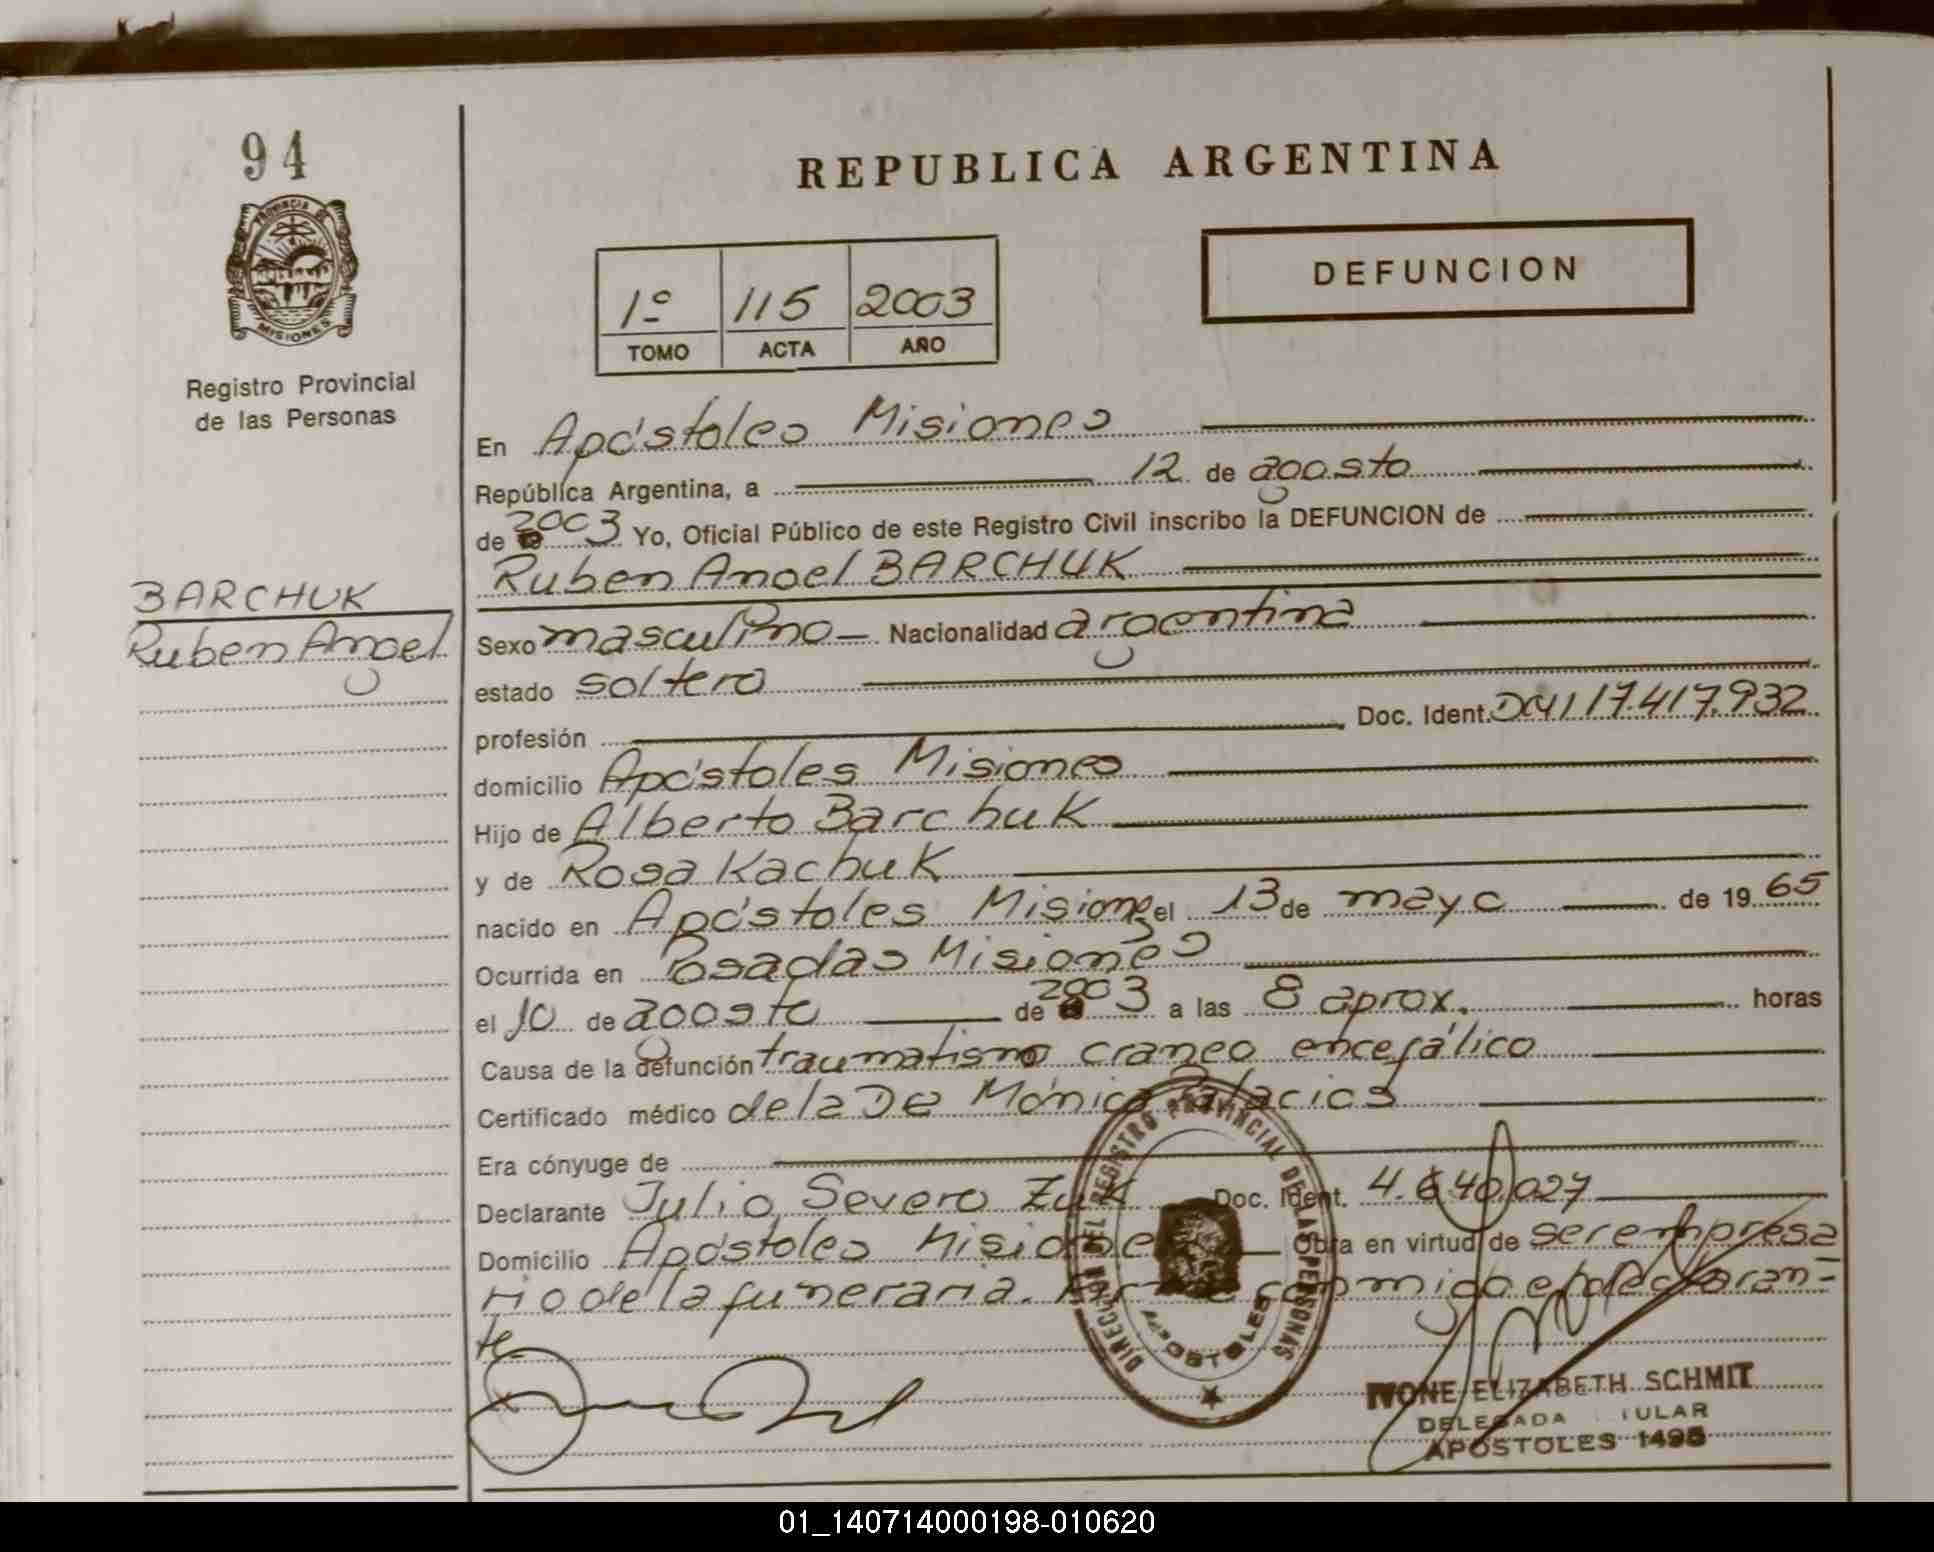 94
REPUBLICA ARGENTINA
PROVINCIA DE
MISIONES
Registro Provincial
de las Personas
1º 115 2003
TOMO ACTA AÑO
DEFUNCION
En Apóstoles Misiones
República Argentina, a 12 de agosto
de 2003 Yo, Oficial Público de este Registro Civil inscribo la DEFUNCION de
Ruben Angel BARCHUK
BARCHUK
Ruben Angel
Sexo masculino Nacionalidad argentina
estado soltero
profesión Doc. Ident. DNI 17.417.932
domicilio Apóstoles Misiones
Hijo de Alberto Barchuk
y de Rosa Kachuk
nacido en Apóstoles Misiones el 13 de mayo de 1965
Ocurrida en Posadas Misiones
el 10 de agosto de 2003 a las 8 aprox. horas
Causa de la defunción traumatismo craneo encefálico
Certificado médico de la Dra Mónica Palacios
Era cónyuge de
Declarante Julio Severo Zuk Doc. Ident. 4.640.027
Domicilio Apóstoles Misiones Obra en virtud de ser empresa
rio de la funeraria. conmigo el declaran-
te
DIRECCION DEL REGISTRO PROVINCIAL DE LAS PERSONAS
APOSTOLES
IVONE ELIZABETH SCHMIT
DELEGADA TITULAR
APOSTOLES 1495
01_140714000198-010620